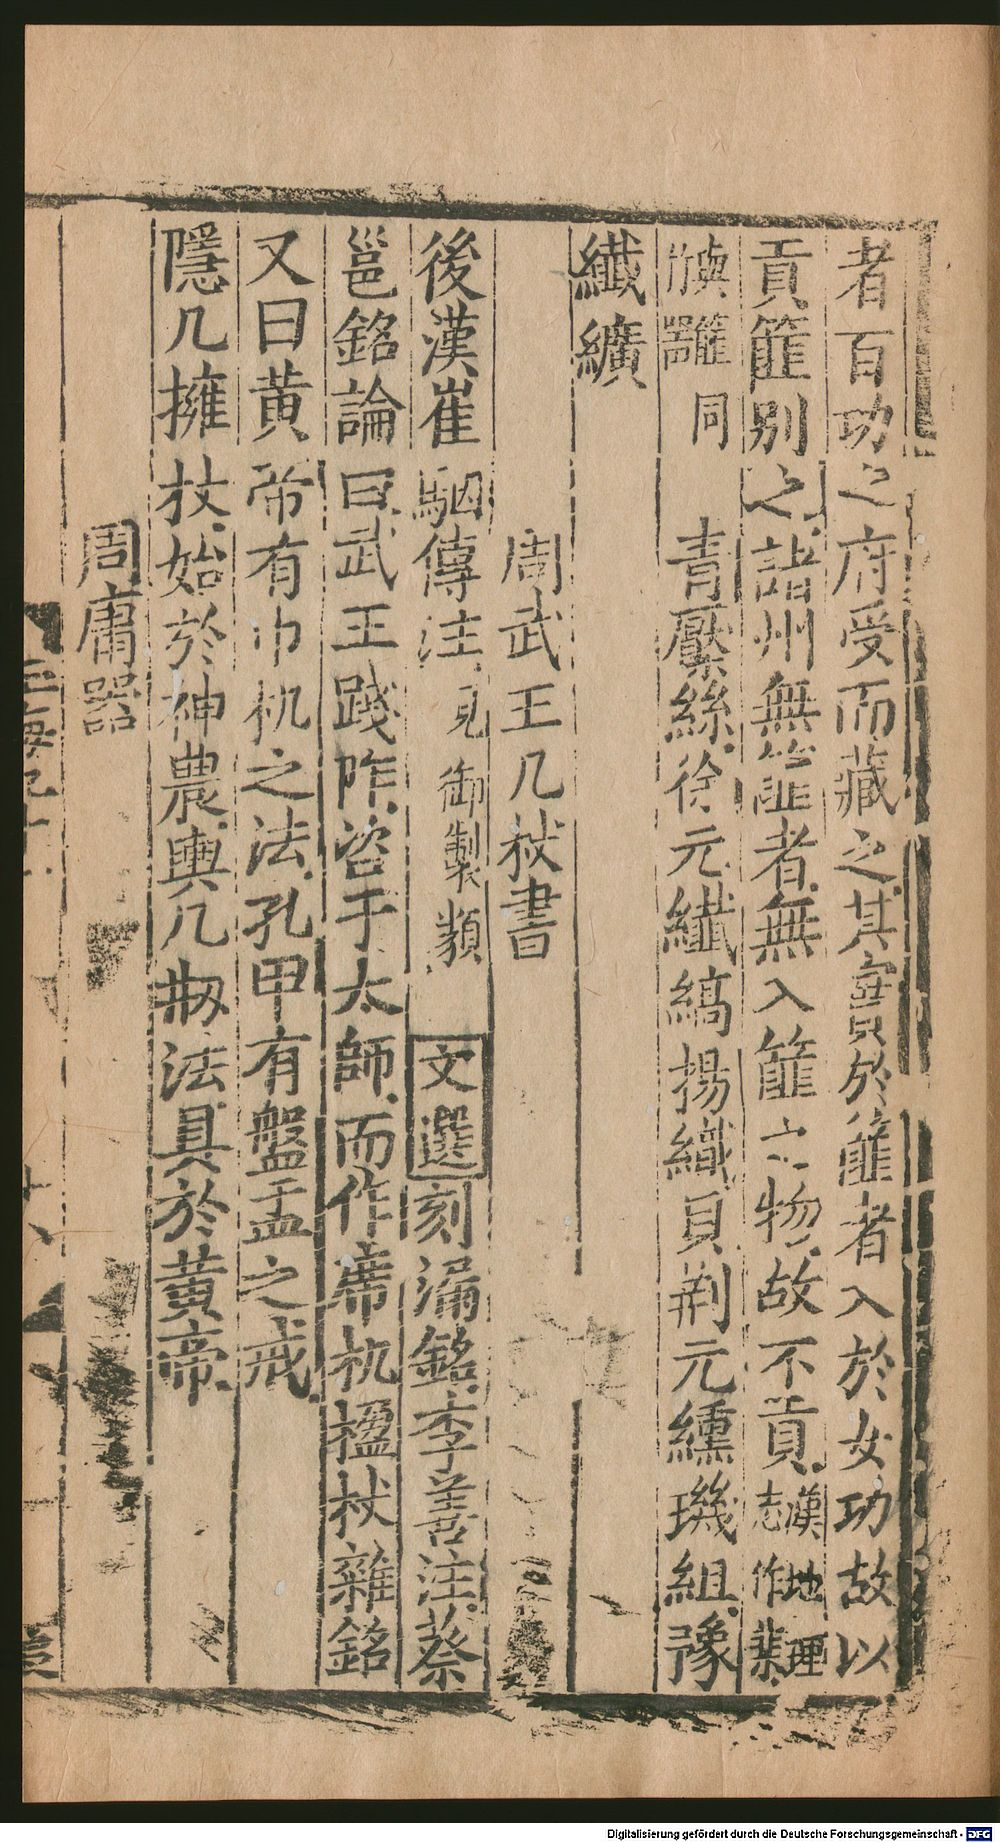 者百功之府受而藏之其實於篚者入於女功故以
貢篚别之諸州無篚者無入篚之物故不貢漢地理志作棐
與篚同青檿絲徐元纖縞揚織貝荆元纁璣組豫
纖纊
周武王几杖書
後漢崔駰傳注見御製類文選刻漏銘李善注蔡
邕銘論曰武王踐阼咨于太師而作席机楹杖雜銘
又曰黄帝有巾机之法孔甲有盤盂之戒
隱几擁杖始於神農輿几剏法具於黄帝
周庸器
Digitalisierung gefördert durch die Deutsche Forschungsgemeinschaft - DFG